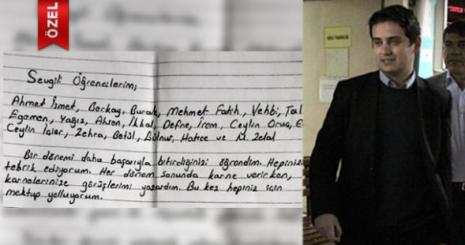 ÖZEL
Sevgili Öğrencilerim,
Ahmet İsmet, Berkay, Burak, Mehmet Fatih, Vehbi,
Egemen, Yağız, Ahsen, İkbal, Defne, İrem, Ceylin Oruç,
Ceylin İzler, Zehra, Betül, Gülnur, Hatice ve M. Zelal
Bir dönemi daha başarıyla bitirdiğinizi öğrendim. Hepinizi
tebrik ediyorum. Her dönem sonunda karne verirken,
karnelerinize görüşlerimi yazardım. Bu kez hepiniz için
mektup yolluyorum.